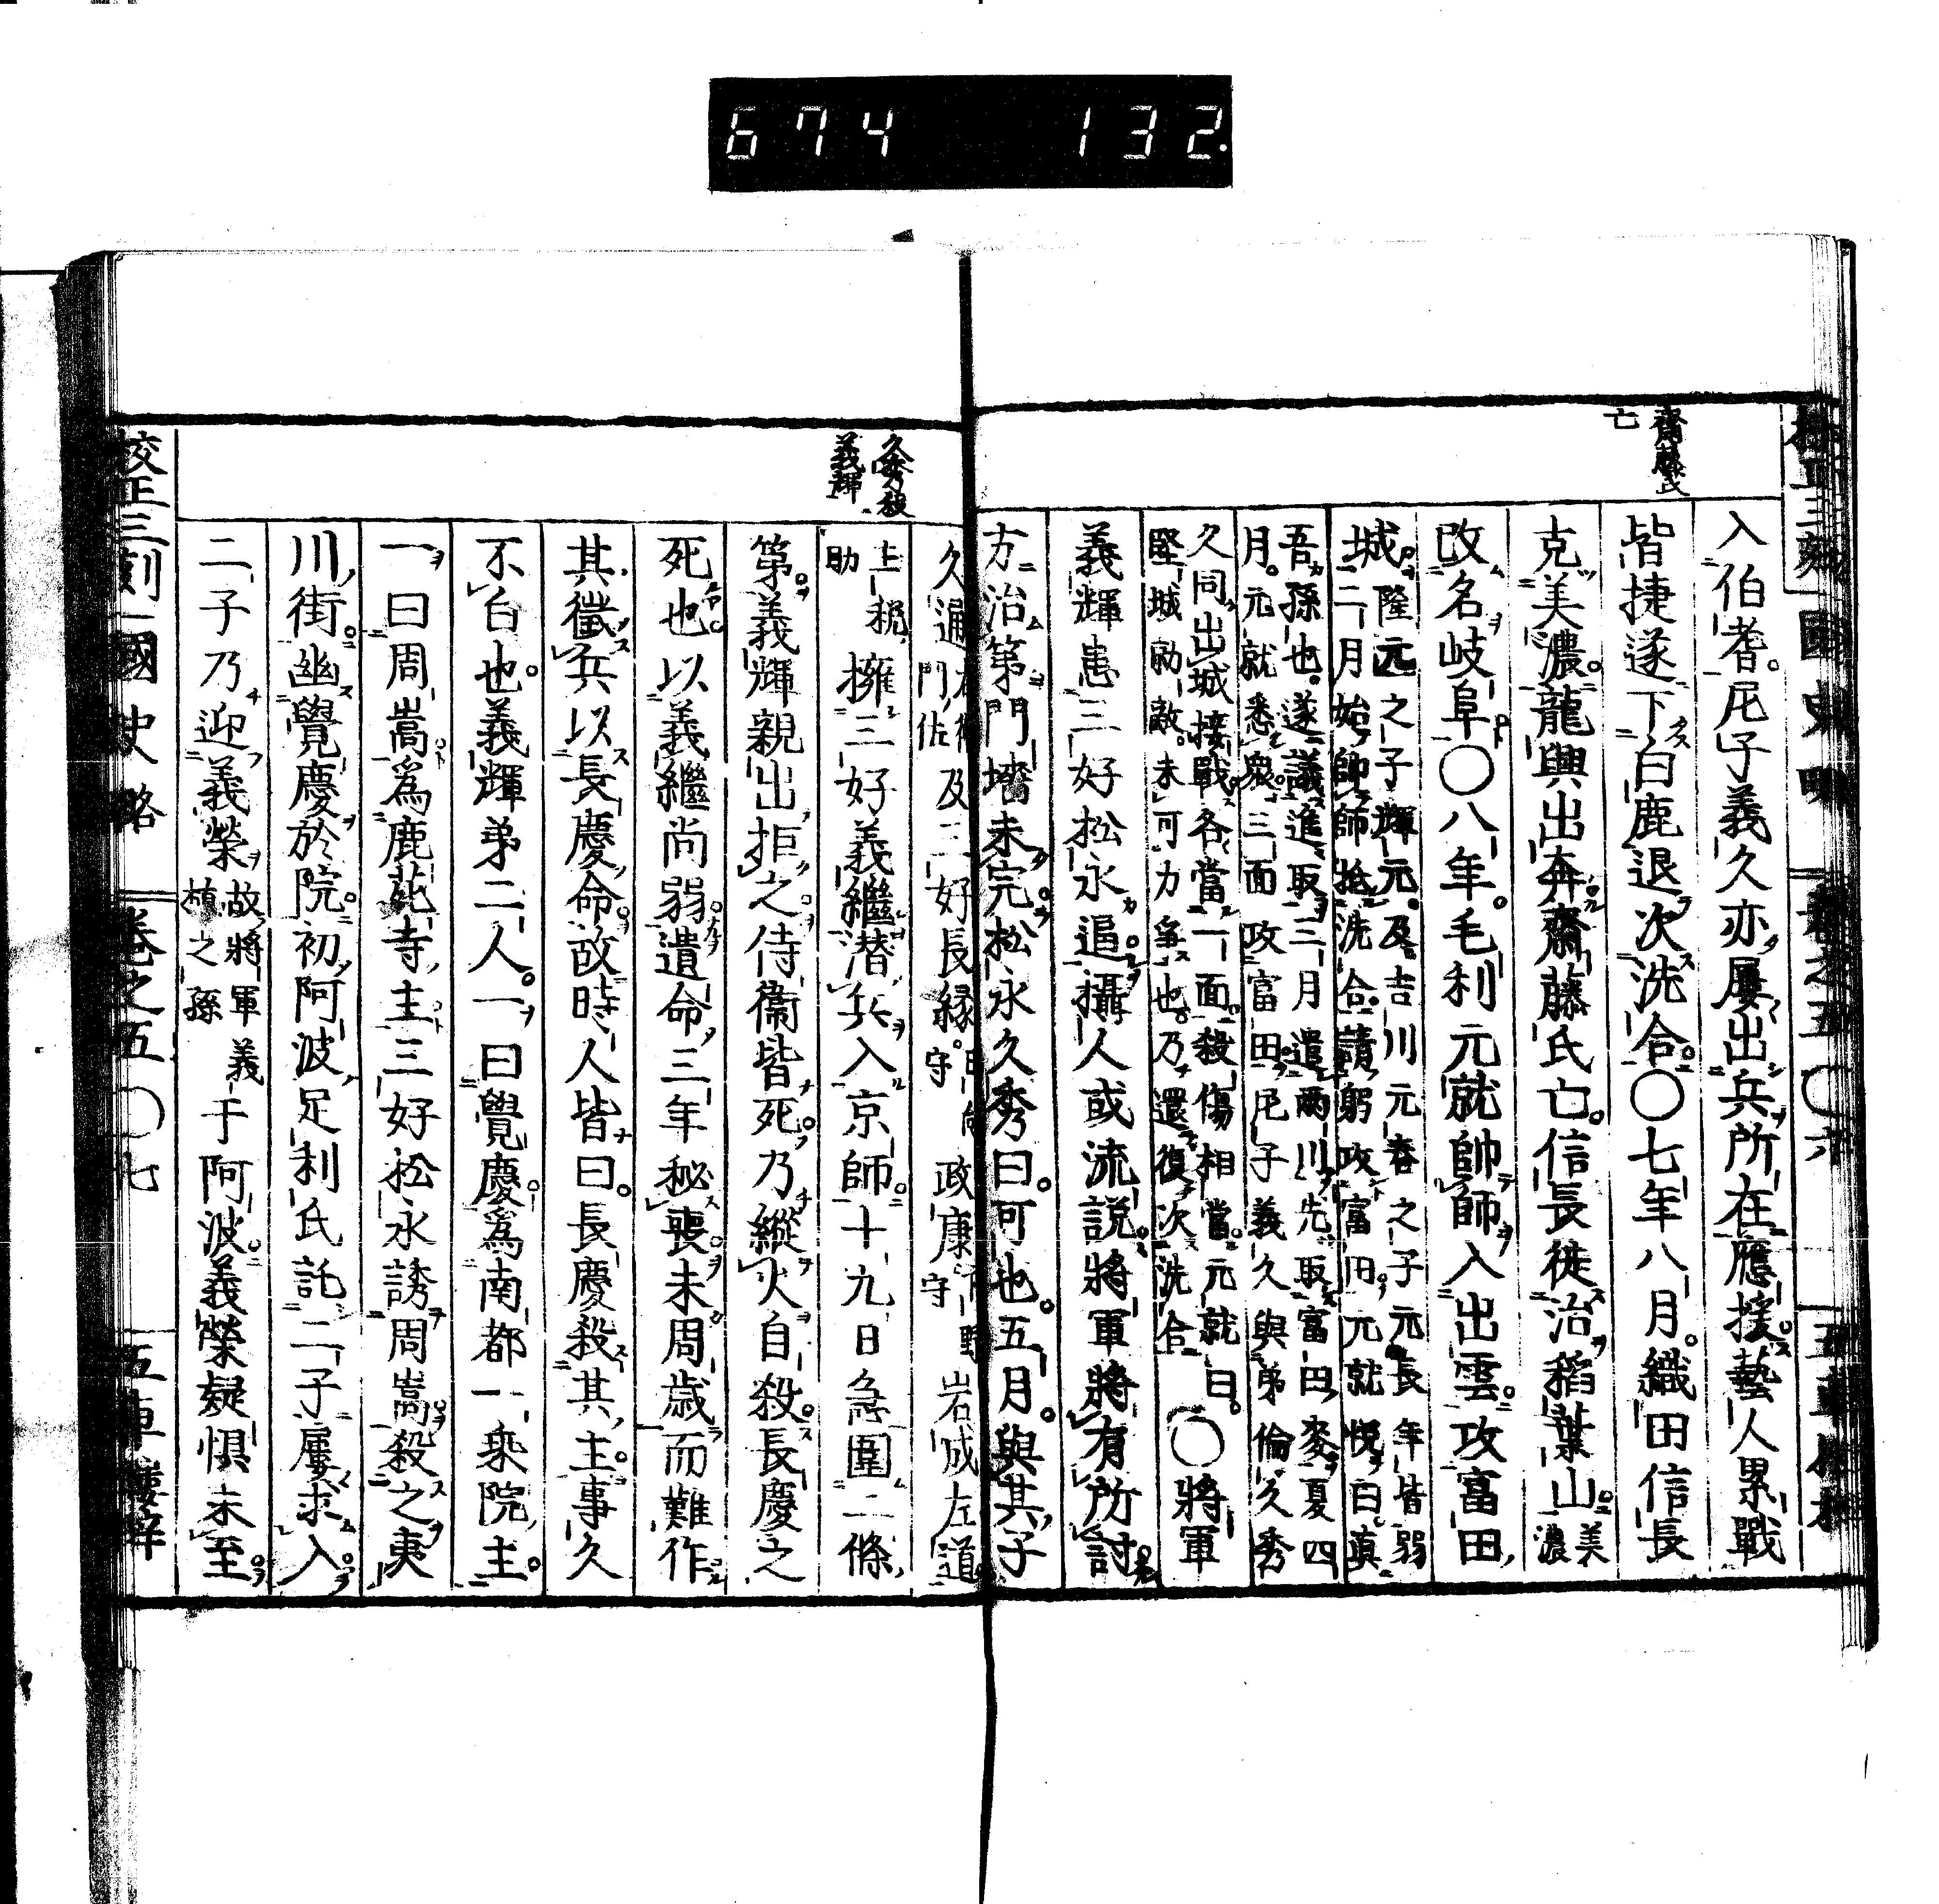 674 132.
齋藤氏
亡
入伯耆。尼子義久亦屢出兵所在應援。藝人累戰
皆捷遂下白鹿退次洗合。〇七年八月。織田信長
克美濃。龍興出奔齋藤氏亡。信長徙治稻葉山。美濃
改名岐阜〇八年。毛利元就帥師入出雲。攻富田
城。隆元之子輝元。及吉川元春之子元長年皆弱
二月始帥師抵洗合。請躬攻富田。元就悅曰。眞
吾孫也。遂議進取。三月遣兩川先取富田麥。夏四
月。元就悉衆。三面攻富田。尼子義久與弟倫久秀
久同出城接戰。各當一面。殺傷相當。元就曰。
堅城勍敵。未可力爭也。乃還復次洗合。
〇將軍
義輝患三好松永逼攝人或流說。將軍將有所討。
方治第門墻未完松永久秀曰。可也。五月。與其子
久秀弑
義輝
久通右衛門佐及三好長緣。日向守政康下野守岩成左道
主稅助擁三好義繼潛兵入京師。十九日急圍二條
第。義輝親出拒之。侍衛皆死。乃縱火自殺。長慶之
死也。以義繼尚弱。遺命三年秘喪。未周歲而難作
其徵兵以長慶命。故時人皆曰。長慶殺其主。事久
不白也。義輝弟二人。一曰覺慶。爲南都一乘院主。
一曰周嵩。爲鹿苑寺主。三好松永誘周嵩。殺之夷
川街。幽覺慶於院。初阿波足利氏託二子屢求入。
二子乃迎義榮故將軍義植之孫于阿波。義榮疑懼未至。
校正三刻國史略 卷之五 〇七 五車樓梓